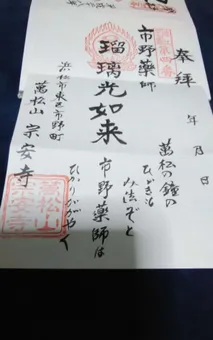 奉拝
年 月 日
市野薬師
瑠璃光如来
浜松市東区市野町
萬松山 宗安寺
萬松の鐘の
ひびきは
み法ぞと
市野薬師は
ひかりかがやく
萬松山
宗安寺